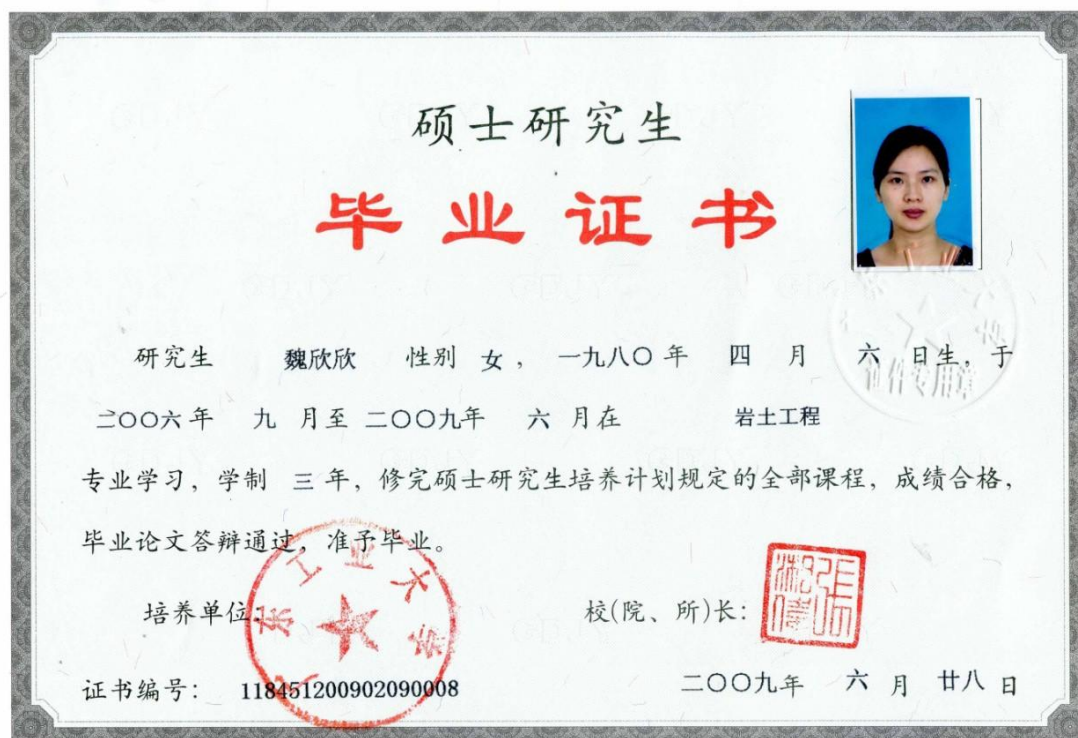 硕士研究生
毕业证书
研究生 魏欣欣 性别 女， 一九八〇 年 四 月 六 日生，于
二〇〇六 年 九 月至 二〇〇九年 六 月在 岩土工程
专业学习，学制 三 年，修完硕士研究生培养计划规定的全部课程，成绩合格，
毕业论文答辩通过，准予毕业。
广东工业大学
培养单位：
校(院、所)长：
证书编号： 118451200902090008
二〇〇九年 六 月 廿八 日
证件专用章